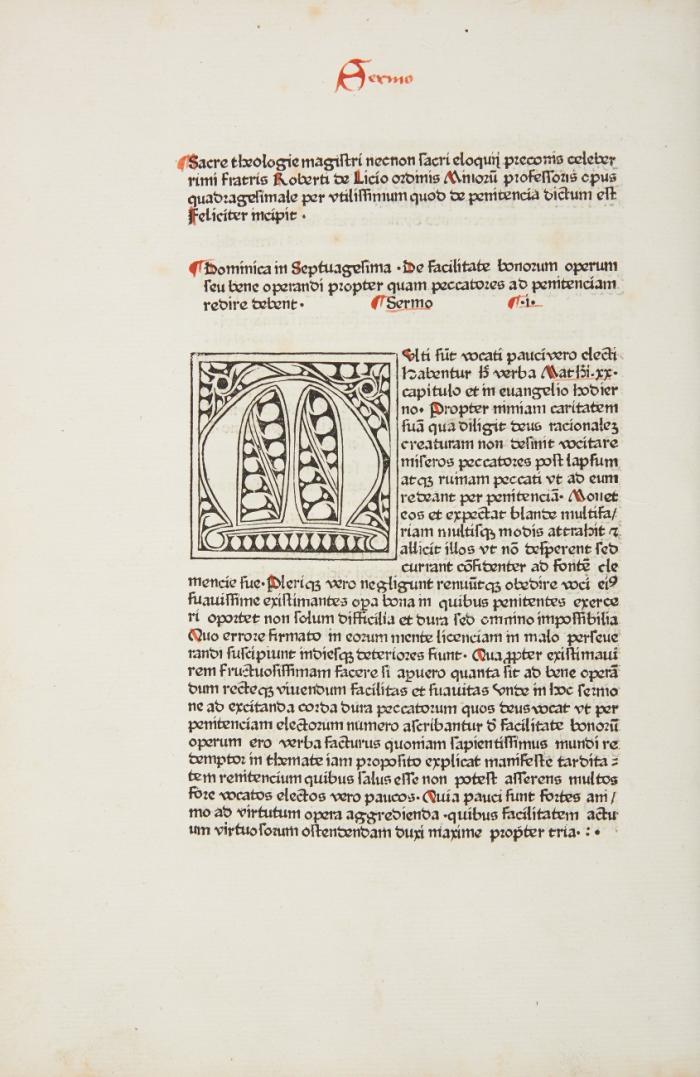 Sermo
¶Sacre theologie magistri necnon sacri eloquij preconis celeber
rimi fratris Roberti de Licio ordinis Minorū professoris opus
quadragesimale per vtilissimum quod de penitencia dictum est
Feliciter incipit .
¶Dominica in Septuagesima . De facilitate bonorum operum
seu bene operandi propter quam peccatores ad penitenciam
redire debent . ¶Sermo ¶.i.
MVlti sūt vocati pauci vero electi
habentur hꝭ verba Mathꝭi.xx.
capitulo et in euangelio hodier
no. Propter nimiam caritatem
suā qua diligit deus racionaleꝫ
creaturam non desinit vocitare
miseros peccatores post lapsum
atqꝫ ruinam peccati vt ad eum
redeant per penitenciā. Mouet
eos et expectat blande multifa/
riam multisqꝫ modis attrahit ⁊
allicit illos vt nō desperent sed
currant cōfidenter ad fontē cle
mencie sue. Pleriqꝫ vero negligunt renuūtqꝫ obedire voci eiꝰ
suauissime existimantes oꝑa bona in quibus penitentes exerce
ri oportet non solum difficilia et dura sed omnino impossibilia
Quo errore firmato in eorum mente licenciam in malo perseue
randi suscipiunt indiesqꝫ deteriores fiunt. Qua ꝓpter existimaui
rem fructuosissimam facere si apuero quanta sit ad bene operā
dum recteqꝫ viuendum facilitas et suauitas Vnde in hoc sermo
ne ad excitanda corda dura peccatorum quos deus vocat vt per
penitenciam electorum numero ascribantur d̄ facilitate bonorū
operum ero verba facturus quoniam sapientissimus mundi re
demptor in themate iam proposito explicat manifeste tardita⸗
tem renitencium quibus salus esse non potest asserens multos
fore vocatos electos vero paucos. Quia pauci sunt fortes ani/
mo ad virtutum opera aggredienda .quibus facilitatem actu
um virtuosorum ostendendam duxi maxime propter tria. : .